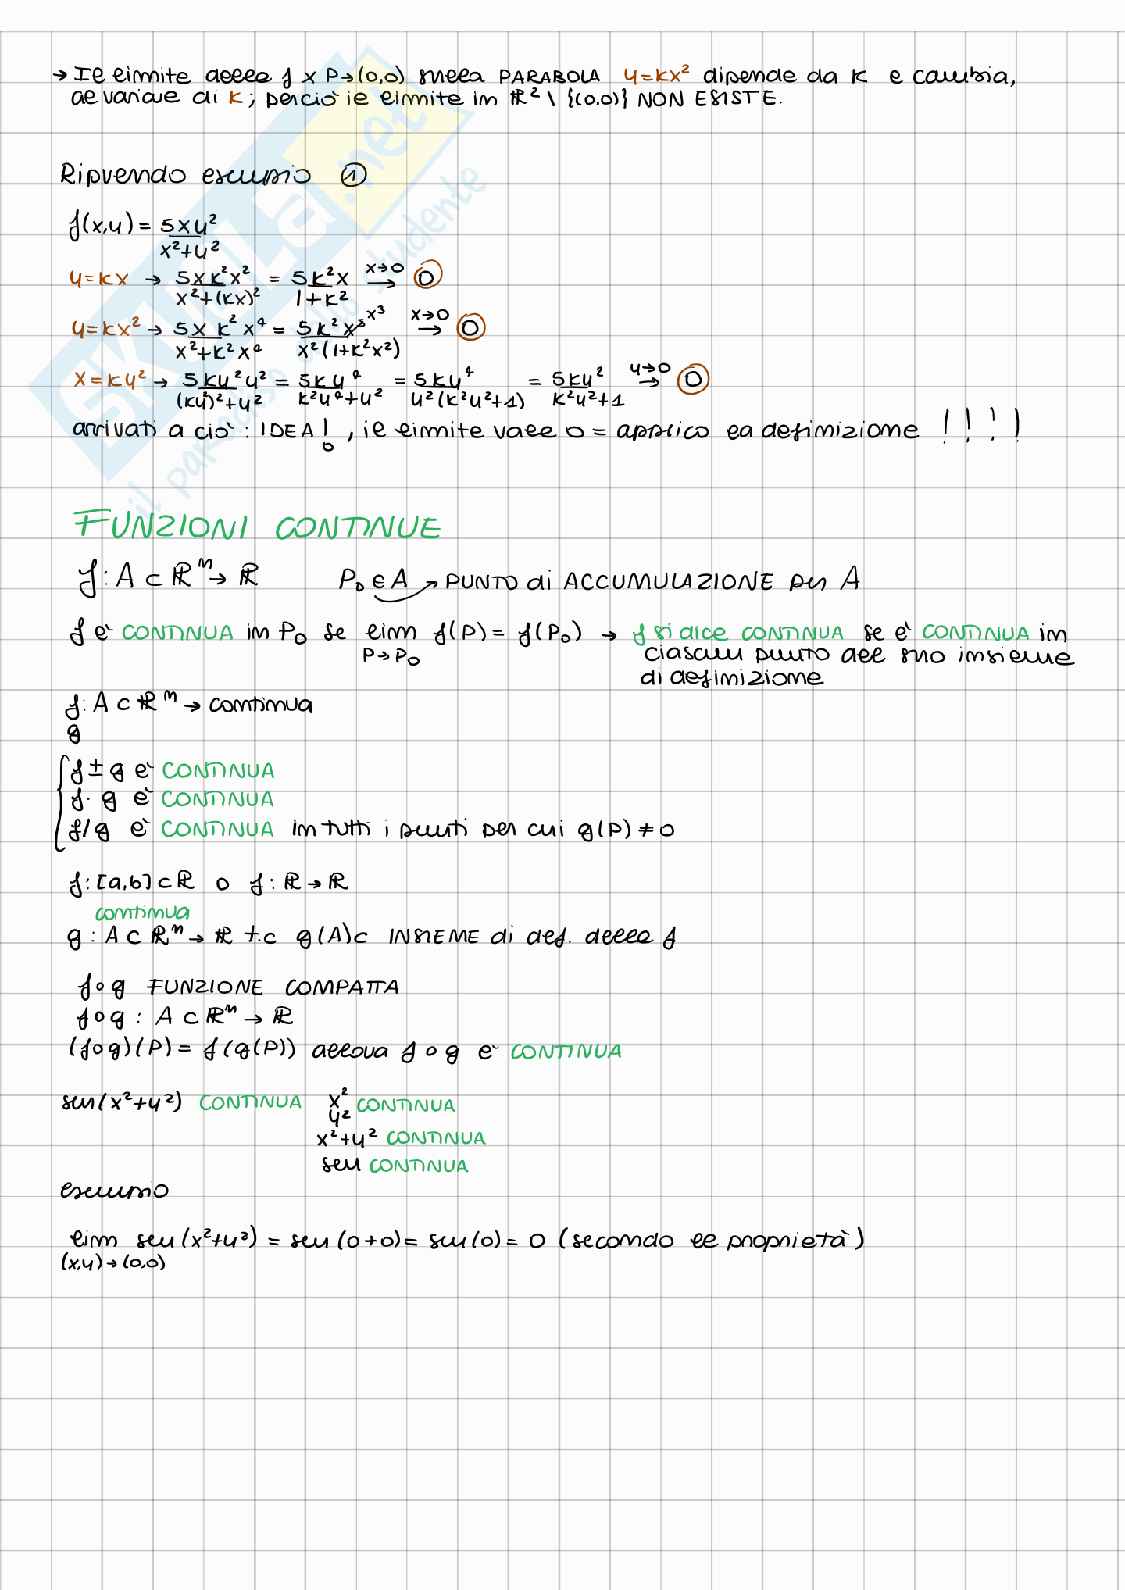 → Il limite della f x P→(0,0) sulla PARABOLA y=kx² dipende da k e cambia,
al variare di k; perciò il limite in ℝ² \ {(0,0)} NON ESISTE.
Riprendo esempio ①
f(x,y) = 5xy² / x²+y²
y=kx → 5xk²x² / x²+(kx)² = 5k²x / 1+k² x→0 → 0
y=kx² → 5x k² x⁴ / x²+k²x⁴ = 5k²x⁵ x³ / x²(1+k²x²) x→0 → 0
x=ky² → 5ky²y² / (ky²)²+y² = 5ky⁴ / k²y⁴+y² = 5ky⁴ / y²(k²y²+1) = 5ky² / k²y²+1 y→0 → 0
arrivati a ciò : IDEA! , il limite vale 0 = applico la definizione ! ! ! !
0
FUNZIONI CONTINUE
f: A ⊂ ℝⁿ → ℝ P₀ ∈ A → PUNTO di ACCUMULAZIONE per A
f è CONTINUA in P₀ se lim f(P) = f(P₀) → f si dice CONTINUA se è CONTINUA in
P→P₀ ciascun punto del suo insieme
di definizione
f: A ⊂ ℝⁿ → continua
g
f ± g è CONTINUA
f · g è CONTINUA
f/g è CONTINUA in tutti i punti per cui g(P) ≠ 0
f: [a,b] ⊂ ℝ o f: ℝ → ℝ
continua
g : A ⊂ ℝⁿ → ℝ t.c g(A) ⊂ INSIEME di def. della f
f∘g FUNZIONE COMPATTA
f∘g : A ⊂ ℝⁿ → ℝ
(f∘g)(P) = f(g(P)) allora f∘g è CONTINUA
sen(x²+y²) CONTINUA x² CONTINUA
y²
x²+y² CONTINUA
sen CONTINUA
esempio
lim sen(x²+y²) = sen(0+0) = sen(0) = 0 (secondo le proprietà)
(x,y)→(0,0)